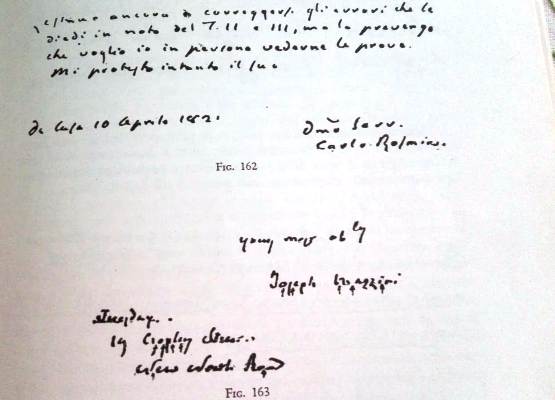 ancora a correggersi gli errori che le
diedi in nota del T. II e III, ma la prevengo
che voglio io in persona vederne le prove.
Mi protesto intanto il suo
Da casa 10 Aprile
Dmo Serv.
Carlo Rosmini.
FIG. 162
Joseph Mazzini
Tuesday.
19 Cropley Street.
New North Road
FIG. 163